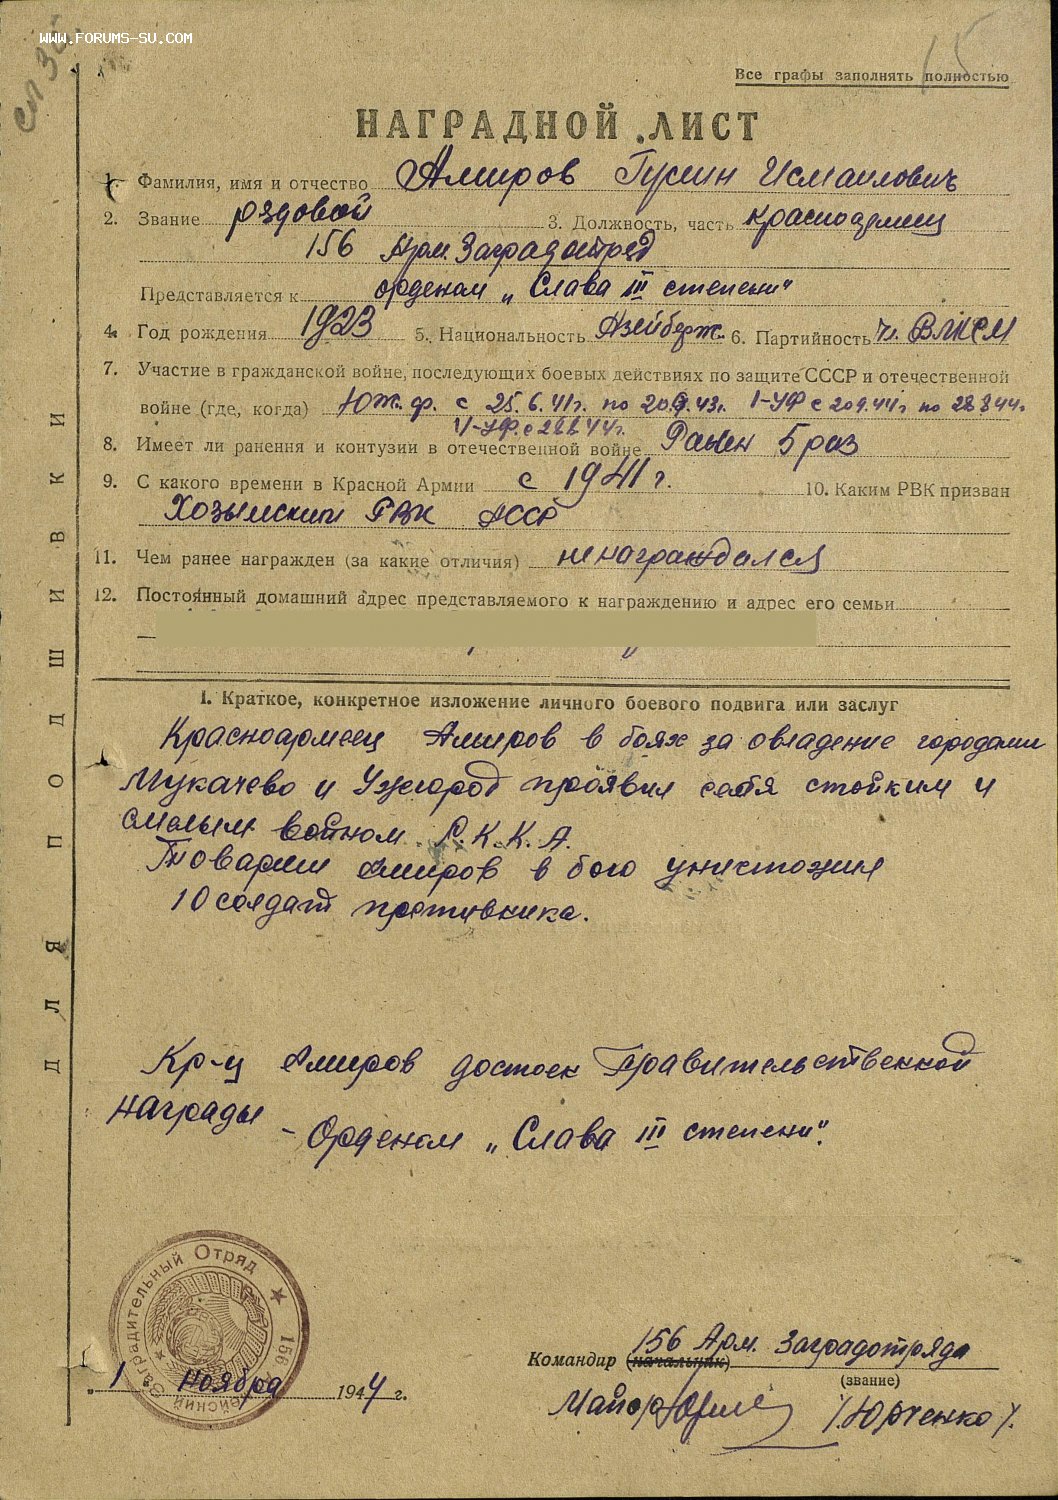 WWW.FORUMS-SU.COM
сп 3
15
Все графы заполнять полностью
НАГРАДНОЙ ЛИСТ
1. Фамилия, имя и отчество Амиров Гусин Исмаилович
2. Звание рядовой 3. Должность, часть красноармеец
156 Арм. Заградотряд
Представляется к орденом „Слава III степени"
4. Год рождения 1923 5. Национальность Азейберж. 6. Партийность чл. ВЛКСМ
7. Участие в гражданской войне, последующих боевых действиях по защите СССР и отечественной
войне (где, когда) Юж. ф. с 25.6.41г. по 20.9.43г. 1-УФ с 20.9.44г по 28.8.44г.
IV-УФ. с 28.8.44г.
8. Имеет ли ранения и контузии в отечественной войне Ранен 5 раз
9. С какого времени в Красной Армии с 1941 г. 10. Каким РВК призван
РВК АССР
11. Чем ранее награжден (за какие отличия) не награждался
12. Постоянный домашний адрес представляемого к награждению и адрес его семьи
I. Краткое, конкретное изложение личного боевого подвига или заслуг
Красноармеец Амиров в боях за овладение городами
Мукачево и Ужгород проявил себя стойким и
смелым войном Р.К.К.А.
Товарищ Амиров в бою уничтожил
10 солдат противника.
Кр-ц Амиров достоен Правительственной
награды – Орденом „Слава III степени".
ДЛЯ ПОДШИВКИ
Заградительный Отряд ★ 156
Командир (начальник) 156 Арм. Заградотряда
(звание)
„1 ноября 1944 г.
Майор /Юрченко/.